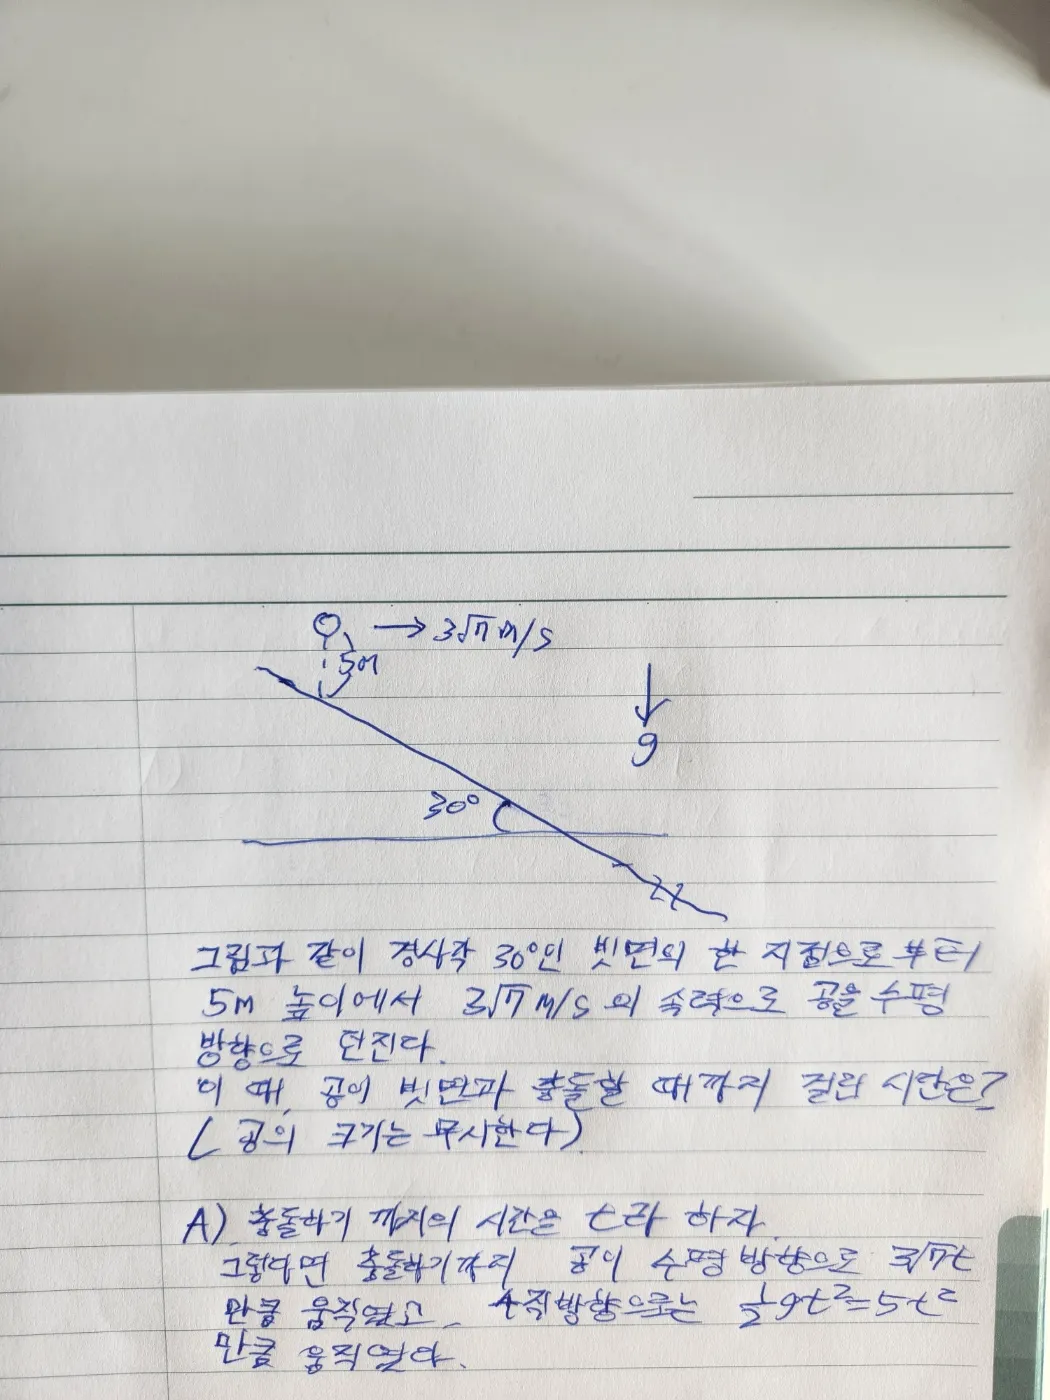 → 3√7 m/s
5m
g
30°
그림과 같이 경사각 30°인 빗면의 한 지점으로부터
5m 높이에서 3√7 m/s의 속력으로 공을 수평
방향으로 던진다.
이 때, 공이 빗면과 충돌할 때까지 걸린 시간은?
(공의 크기는 무시한다)
A) 충돌하기 까지의 시간은 t라 하자.
그렇다면 충돌하기까지 공이 수평방향으로 3√7t
만큼 움직였고, 수직방향으로는 ½gt²=5t²
만큼 움직였다.